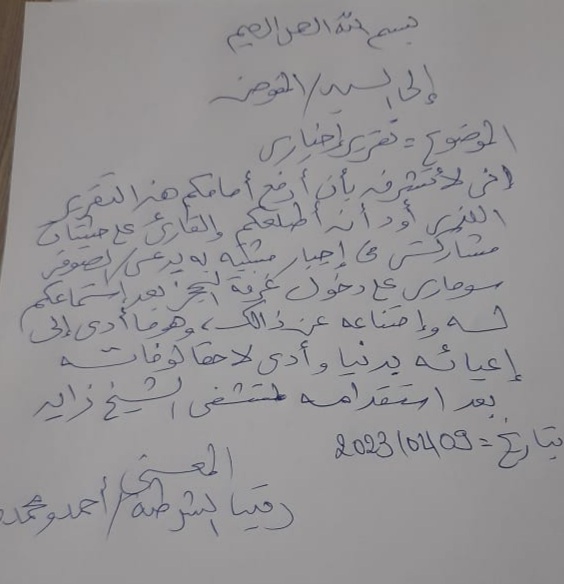 بسم الله الرحمن الرحيم
إلى السيد/المفوض
الموضوع = تقرير إخباري
إني لأتشرف بأن أرفع أمامكم هذا التقرير
الذي أود أن أطلعكم والقارئ على حيثيات
مشاركتي في إجبار مشتبه به يدعى/الصوفي
سوماري على دخول غرفة الحجز بعد استماعكم
له وامتناعه عن ذالك، وهو ما أدى إلى
إعيائه بدنيا وأدى لاحقا لوفاته
بعد استقدامه لمستشفى الشيخ زايد
بتاريخ = 2023/02/09
المعني
رقيب الشرطة/أحمدو محمد